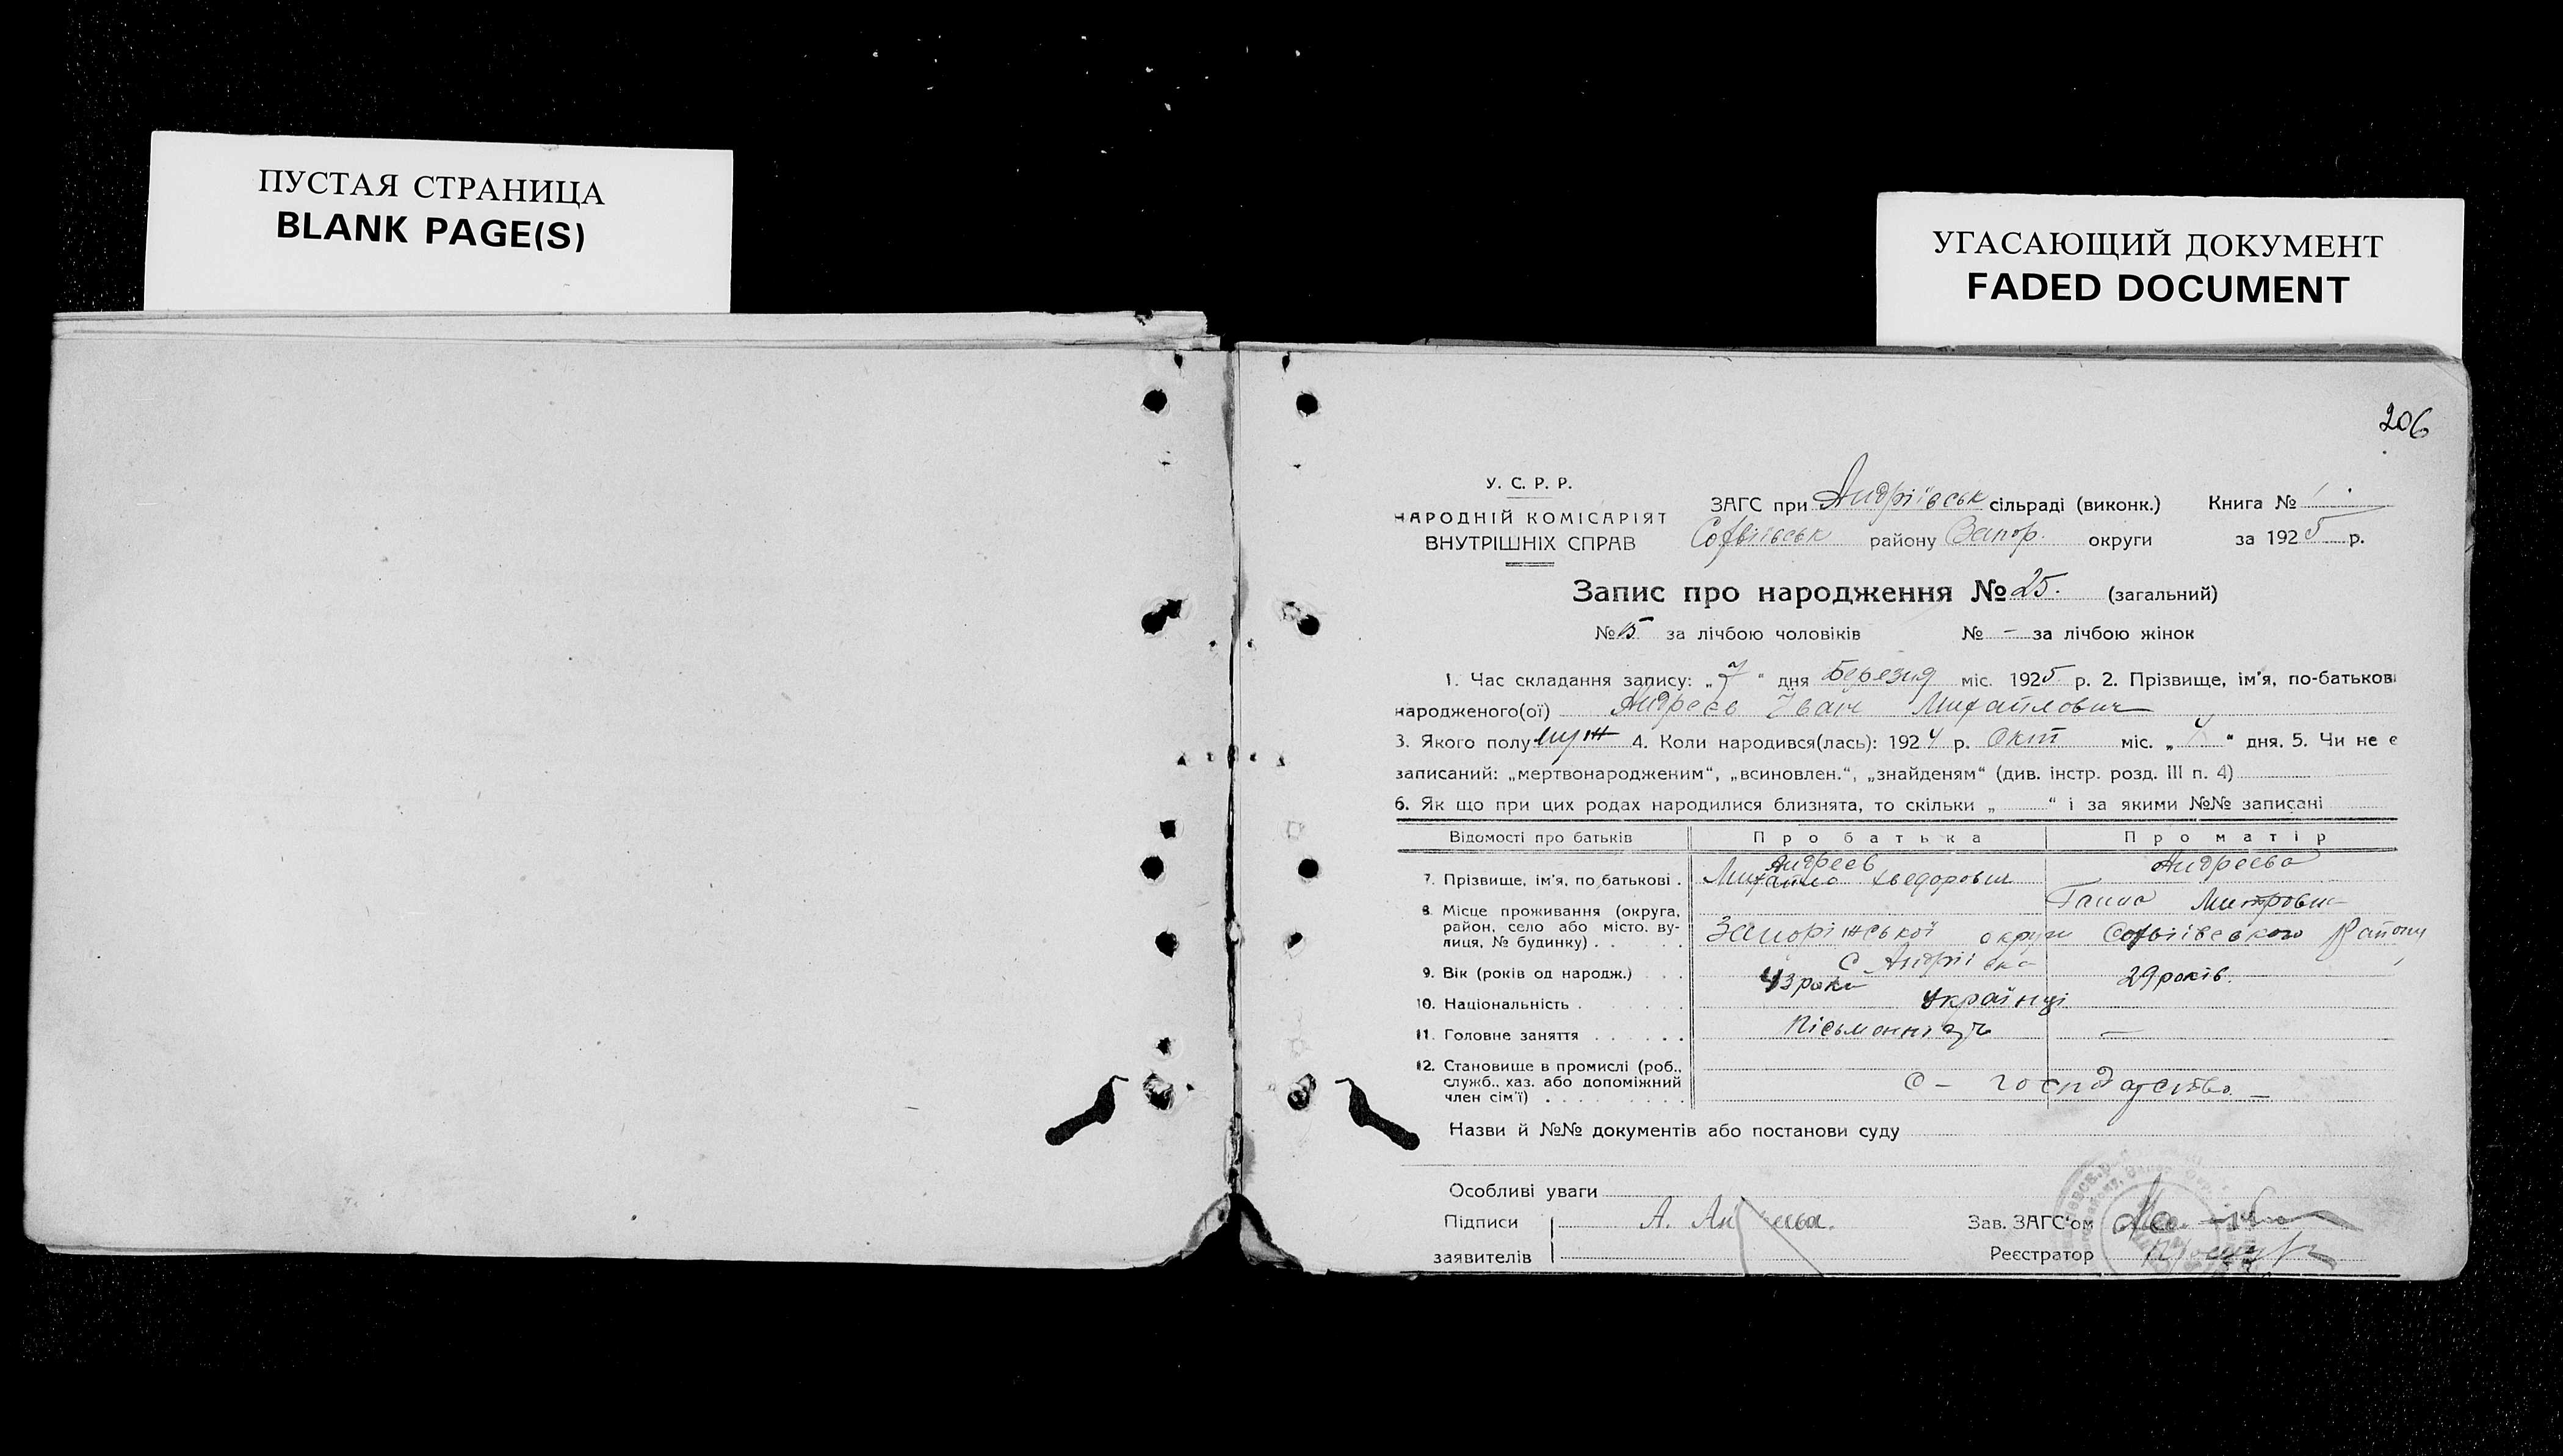 ПУСТАЯ СТРАНИЦА
BLANK PAGE(S)
УГАСАЮЩИЙ ДОКУМЕНТ
FADED DOCUMENT
206
У. С. Р. Р.
НАРОДНІЙ КОМІСАРІЯТ
ВНУТРІШНІХ СПРАВ
ЗАГС при Андріівськ сільраді (виконк.) Книга № 1
Софіівськ району Запор. округи за 1925 р.
Запис про народження № 25. (загальний)
№ 15 за лічбою чоловіків № — за лічбою жінок
1. Час складання запису: „7" дня Березня міс. 1925 р. 2. Прізвище, ім'я, по-батькові
народженого(ої) Андреев Іван Михайлович
3. Якого полу муж 4. Коли народився(лась): 1924 р. Окт міс. „ " дня. 5. Чи не є
записаний: „мертвонародженим", „всиновлен.", „знайденям" (див. інстр. розд. III п. 4)
6. Як що при цих родах народилися близнята, то скільки „ " і за якими №№ записані
Відомості про батьків Про батька Про матір
7. Прізвище, ім'я, по батькові . Андреев Михайло Хведорович Андреева Ганна Митровн
8. Місце проживання (округа,
район, село або місто, ву-
лиця, № будинку) . . Запоріжської округи Софіівського Району
с Андріівка
9. Вік (років од народж.) 43 роки 29 років.
10. Національність . Українці
11. Головне заняття —
12. Становище в промислі (роб.,
служб., хаз. або допоміжний
член сім'ї) . с – госпдарство —
Назви й №№ документів або постанови суду
Особливі уваги
Підписи А. Зав. ЗАГС'ом
заявителів Реєстратор